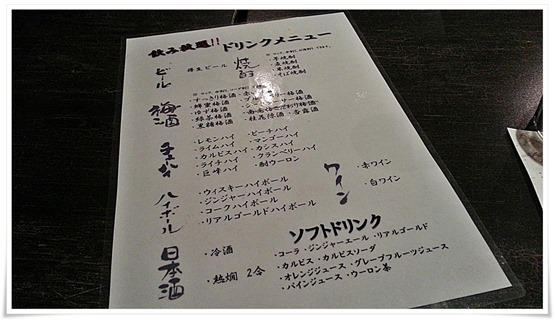 飲み放題!! ドリンクメニュー
ビール
・樽生ビール
焼酎
・芋焼酎
・麦焼酎
・米焼酎
・そば焼酎
梅酒
・すっきり梅酒
・蜂蜜梅酒
・ゆず梅酒
・緑茶梅酒
・黒糖梅酒
・桂花陳酒・杏露酒
チューハイ
・レモンハイ ・ピーチハイ
・ライムハイ ・マンゴーハイ
・カルピスハイ ・カシスハイ
・ライチハイ ・クランベリーハイ
・巨峰ハイ ・酎ウーロン
ハイボール
・ウィスキーハイボール
・ジンジャーハイボール
・コークハイボール
・リアルゴールドハイボール
ワイン
・赤ワイン
・白ワイン
日本酒
・冷酒
・熱燗 2合
ソフトドリンク
・コーラ ・ジンジャーエール ・リアルゴールド
・カルピス ・カルピスソーダ
・オレンジジュース ・グレープフルーツジュース
・パインジュース ・ウーロン茶